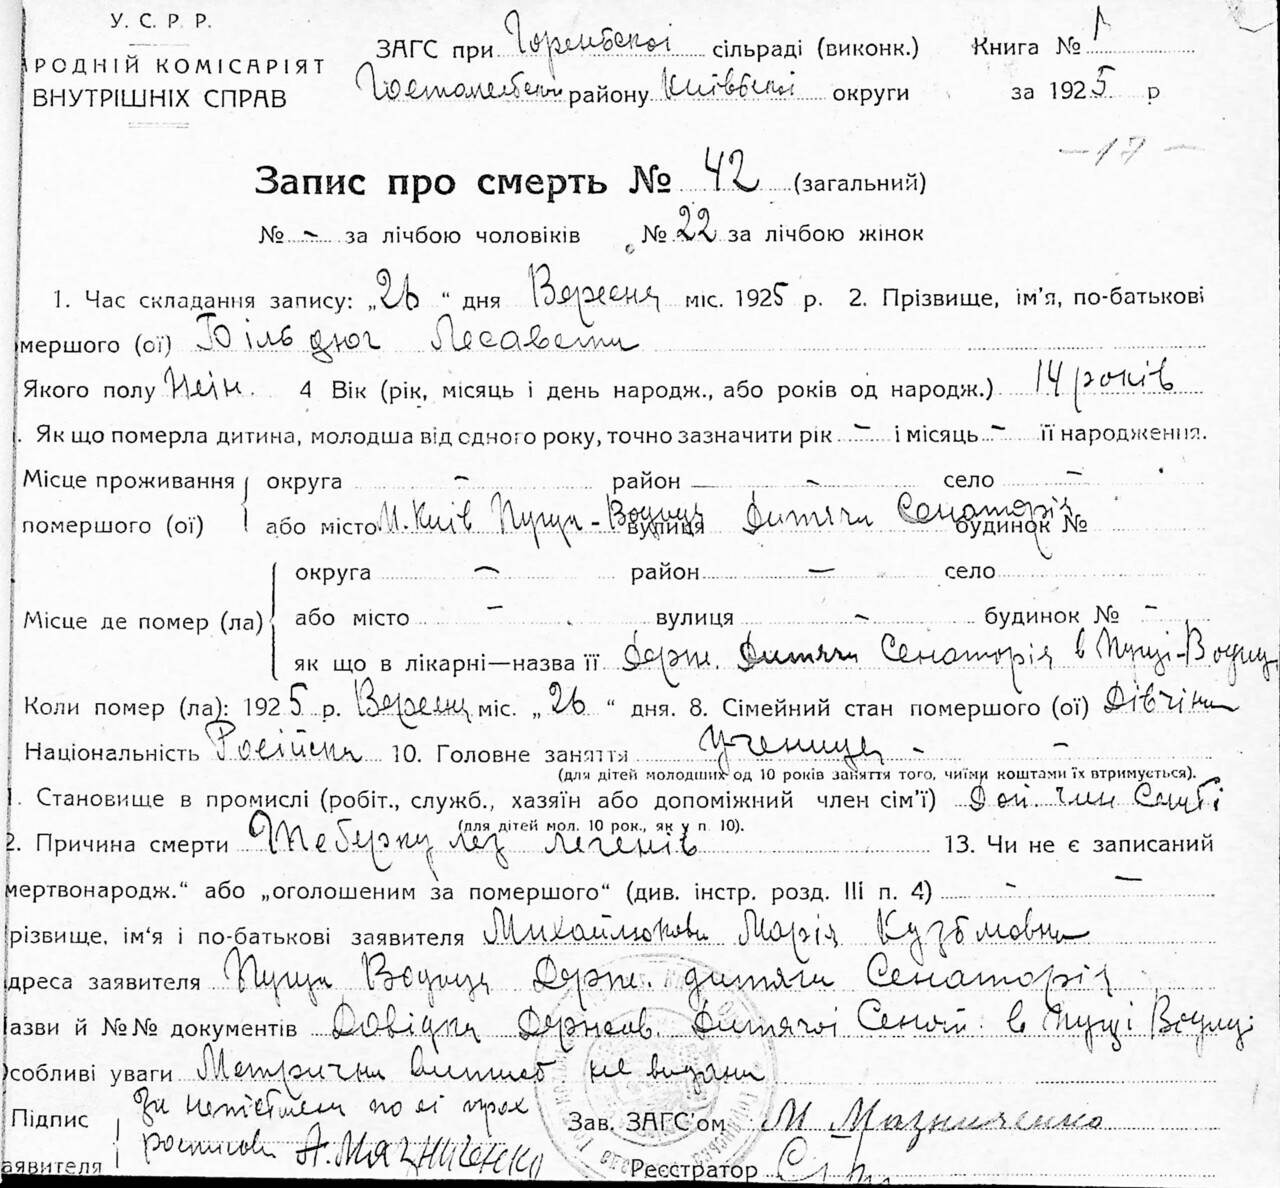 У. С. Р. Р.
РОДНІЙ КОМІСАРІЯТ
ВНУТРІШНІХ СПРАВ
ЗАГС при Горенської сільраді (виконк.) Книга № 1
Гостомельськ району Київської округи за 1925 р
— 17 —
Запис про смерть № 42 (загальний)
№ – за лічбою чоловіків № 22 за лічбою жінок
1. Час складання запису: „26 “ дня Вересня міс. 1925 р. 2. Прізвище, ім’я, по-батькові
мершого (ої)
Якого полу 4 Вік (рік, місяць і день народж., або років од народж.) 14 років
. Як що померла дитина, молодша від одного року, точно зазначити рік – і місяць – її народження.
Місце проживання округа – район – село –
помершого (ої) або місто М. Київ Пуща-Водиця вулиця Дитяча Сенаторія будинок №
округа – район – село
Місце де помер (ла) або місто – вулиця – будинок № –
як що в лікарні—назва її Держ. Дитяча Сенаторія в Пущі-Водиці
Коли помер (ла): 1925 р. Вересня міс. „26 “ дня. 8. Сімейний стан помершого (ої) Дівчіна
Національність Російска 10. Головне заняття Учениця – –
(для дітей молодших од 10 років заняття того, чиїми коштами їх втримується).
1. Становище в промислі (робіт., служб., хазяїн або допоміжний член сім’ї)
(для дітей мол. 10 рок., як у п. 10).
2. Причина смерти Теберкулез легенів 13. Чи не є записаний
мертвонародж.“ або „оголошеним за помершого“ (див. інстр. розд. III п. 4) – —
різвище, ім’я і по-батькові заявителя Михайлюкова Марія Кузьмовна
дреса заявителя Пуща Водиця Держ. дитяча Сенаторія
азви й №№ документів Довідка Держав. Дитячої Сенат. в Пущі Водиці
собливі уваги Метрични виписі не видани
Підпис За
аявителя росписався А. Мазниченко
Зав. ЗАГС’ом М Мазниченко
Реєстратор